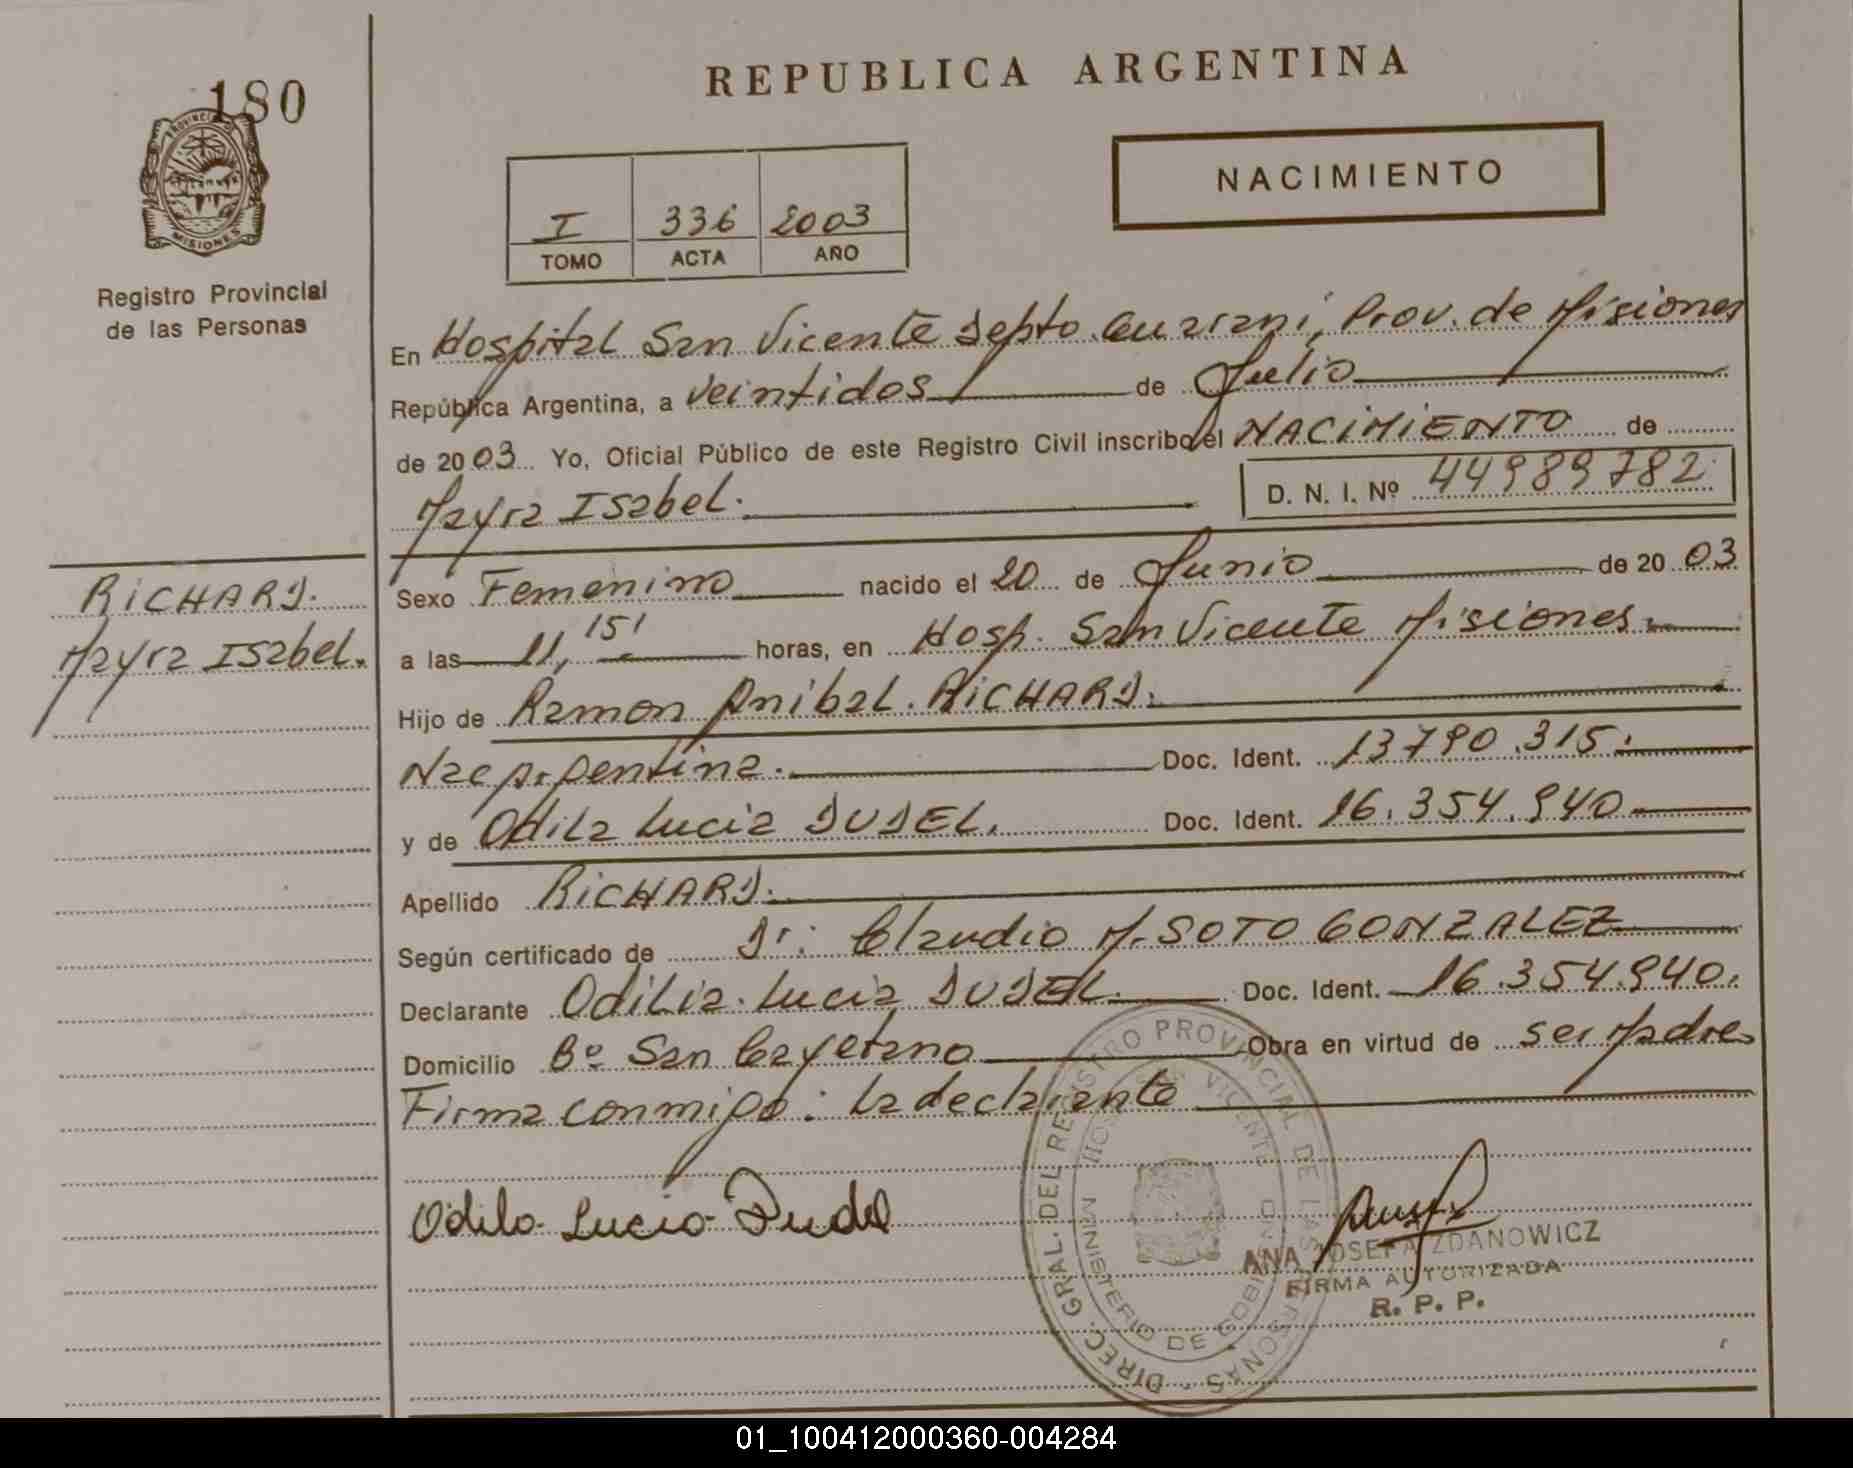 180
PROVINCIA DE
MISIONES
Registro Provincial
de las Personas
RICHARD.
Mayra Isabel.
REPUBLICA ARGENTINA
NACIMIENTO
I 336 2003
TOMO ACTA AÑO
En Hospital San Vicente Depto. Guarani, Prov. de Misiones
República Argentina, a veintidos de Julio
de 2003 Yo, Oficial Público de este Registro Civil inscribo el NACIMIENTO de
Mayra Isabel. D. N. I. Nº 44989782
Sexo Femenino nacido el 20 de Junio de 20 03
a las 11, 15' horas, en Hosp. San Vicente Misiones.
Hijo de Ramon Anibal RICHARD.
Nac Argentina. Doc. Ident. 13790.315.
y de Odila Lucia DUDEL. Doc. Ident. 16.354.940
Apellido RICHARD.
Según certificado de Dr: Claudio M. SOTO GONZALEZ
Declarante Odilia Lucia DUDEL. Doc. Ident. 16.354.940.
Domicilio Bº San Cayetano Obra en virtud de ser Madre
Firma conmigo: La declarante
Odila Lucia Dudel
DIREC. GRAL. DEL REGISTRO PROVINCIAL DE LAS PERSONAS
MINISTERIO DE GOBIERNO
ANA JOSEFA ZDANOWICZ
FIRMA AUTORIZADA
R. P. P.
01_100412000360-004284